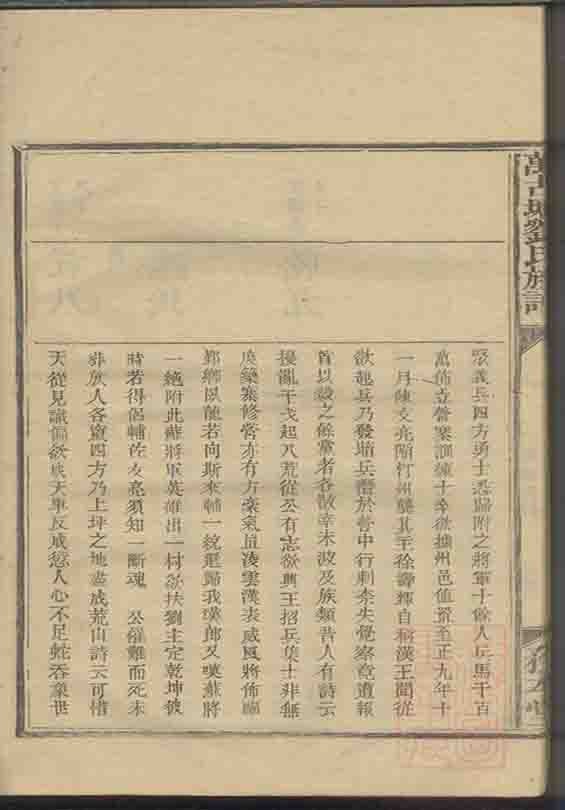 聚義兵四方勇士悉歸附之將軍十餘人兵馬千百
萬佈立營寨訓練十幸從撫州邑值荒至正九年十
一月陳文亮陷汀州襲其王徐壽輝自稱漢王聞從
欲起兵乃發墻兵潛於營中行刺李失覺察竟遭報
首以殺之餘黨者各散幸未波及族類昔人有詩云
擾亂干戈起八荒從公有志欲興王招兵集士非無
築寨修營亦有方豪氣直凌雲漢表威風將佈
鄉臥龍若向斯來輔一統還歸我漢郎又嘆蘇將
一絕附此蘇將軍英雄出一村欲扶劉主定乾坤彼
時若得侶輔佐友亮須知一斷魂 公催難而死未
非族人各竄四方乃上坪之地盡成荒山詩云可惜
天從見識偏欲成天事反成愆人心不足蛇吞象世
劉氏族譜